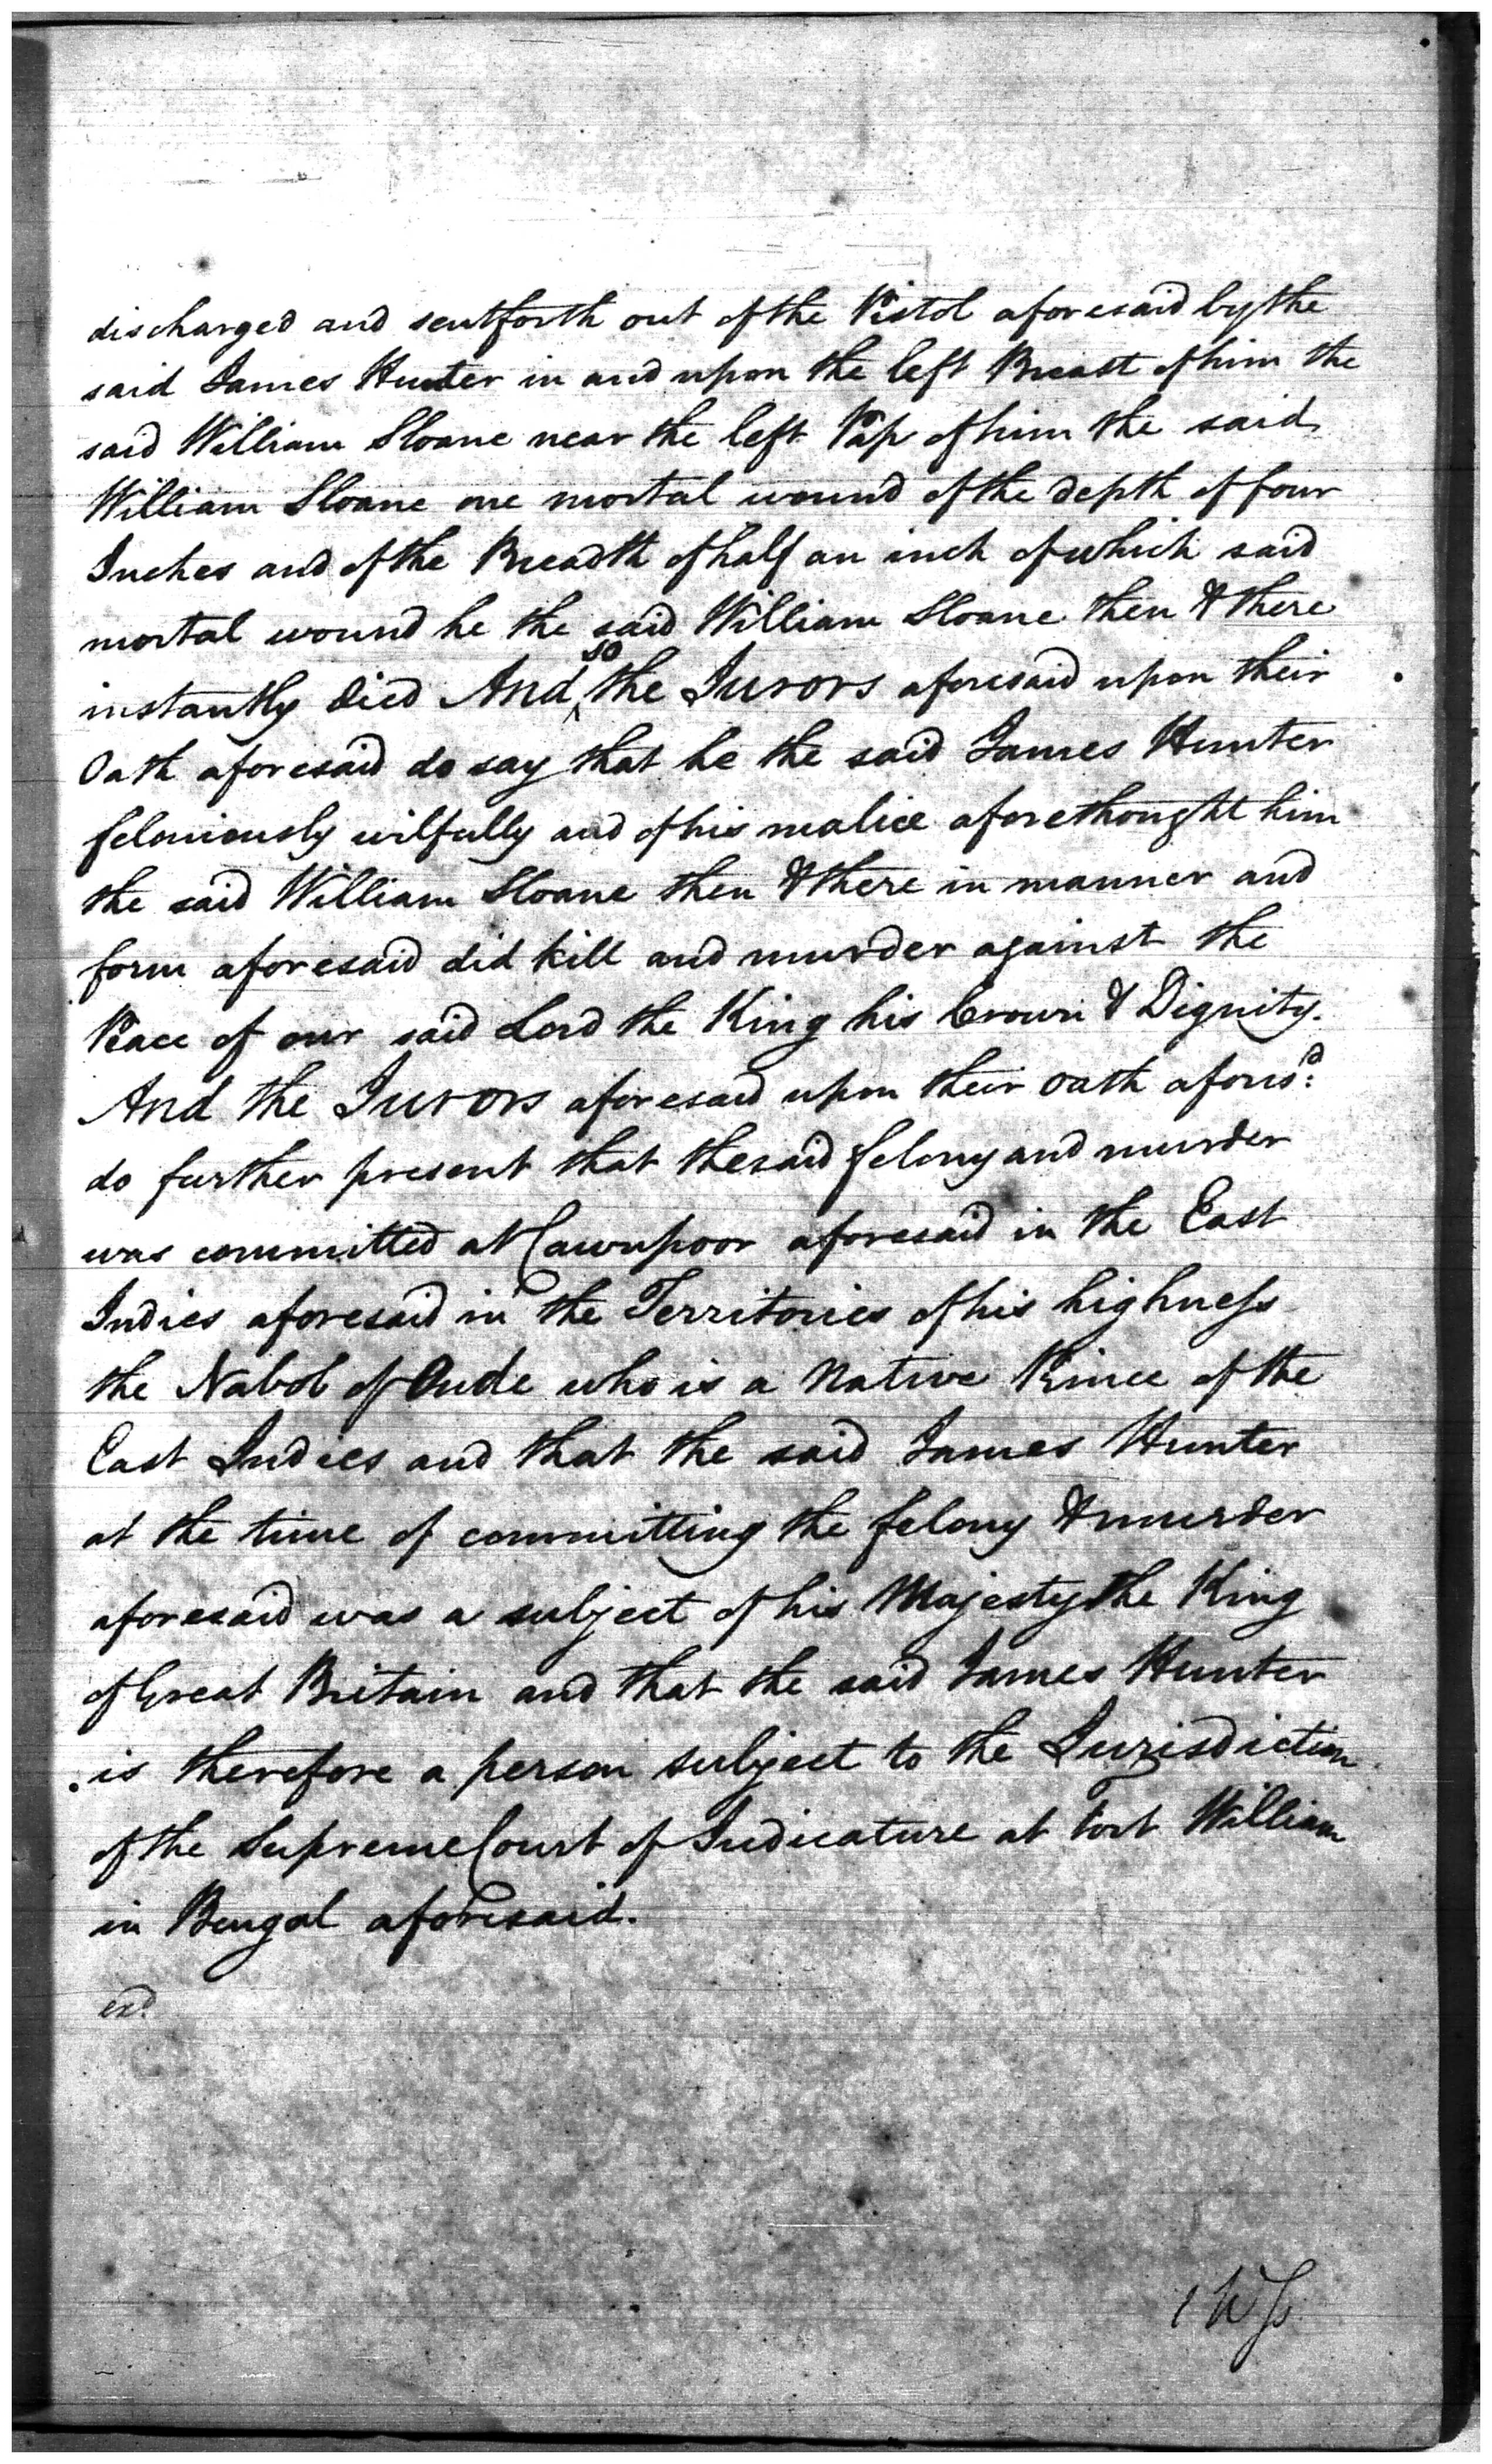 discharged and sent forth out of the Pistol aforesaid by the
said James Hunter in and upon the left Breast of him the
said William Sloane near the left Pap of him the said
William Sloane one mortal wound of the depth of four
Inches and of the Breadth of half an inch of which said
mortal wound he the said William Sloane then & there
instantly died And so the Jurors aforesaid upon their
Oath aforesaid do say that he the said James Hunter
feloniously wilfully and of his malice aforethought him
the said William Sloane then & there in manner and
form aforesaid did kill and murder against the
Peace of our said Lord the King his Crown & Dignity.
And the Jurors aforesaid upon their oath afores:d
do further present that the said felony and murder
was committed at Cawnpoor aforesaid in the East
Indies aforesaid in the Territories of his highness
the Nabob of Oude who is a Native Prince of the
East Indies and that the said James Hunter
at the time of committing the felony & murder
aforesaid was a subject of his Majesty the King
of Great Britain and that the said James Hunter
is therefore a person subject to the Jurisdiction
of the Supreme Court of Judicature at Fort William
in Bengal aforesaid.
exd.